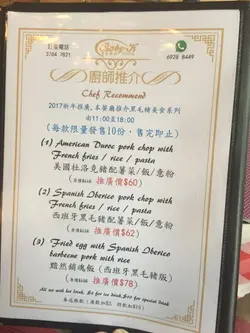 訂座電話
3704
6928 8489
廚師推介
Chef Recommend
2017新年推廣,本餐廳推介黑毛豬美食系列
由11:00至18:00
(每款限量發售10份,售完即止)
(1) American Duroc pork chop with
French fries / rice / pasta
美國杜洛克豬配薯菜/飯/意粉
推廣價$60
(2) Spanish Iberico pork chop with
French fries / rice / pasta
西班牙黑毛豬配薯菜/飯/意粉
推廣價$62
(3) Fried egg with Spanish Iberico
barbecue pork with rice
黯然銷魂飯 (西班牙黑毛豬版)
推廣價$78